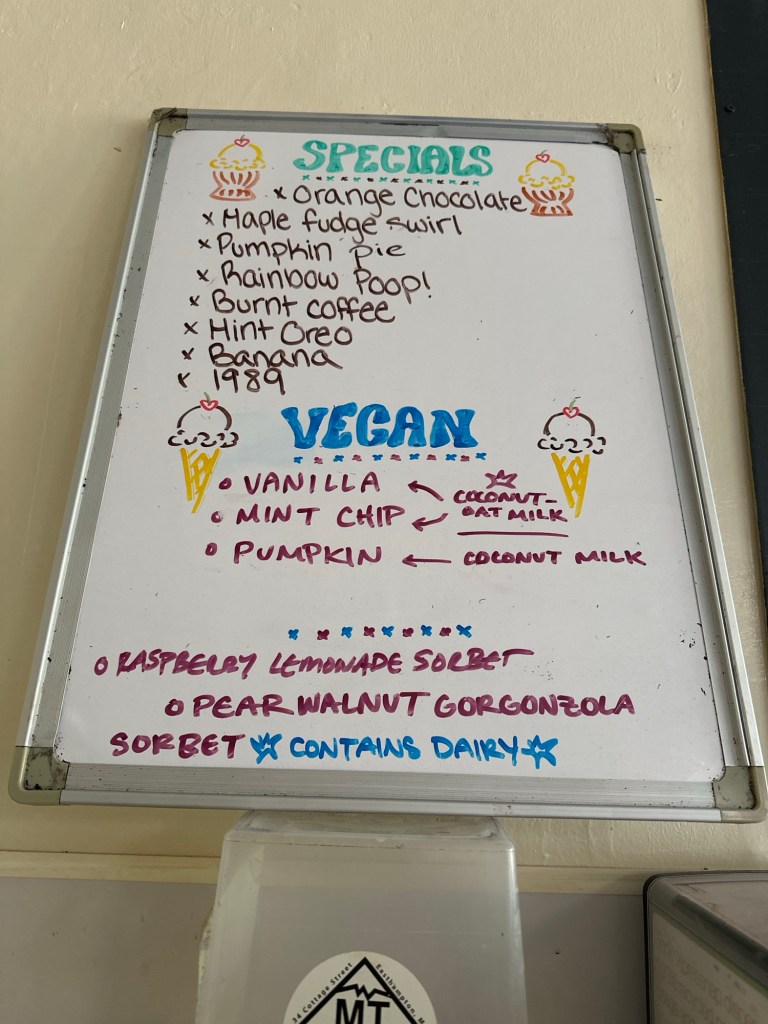 SPECIALS
x Orange Chocolate
x Maple fudge swirl
x Pumpkin pie
x Rainbow Poop!
x Burnt coffee
x Mint Oreo
x Banana
x 1989
VEGAN
VANILLA
COCONUT-
OAT MILK
MINT CHIP
PUMPKIN ← COCONUT MILK
RASPBERRY LEMONADE SORBET
PEAR WALNUT GORGONZOLA
SORBET ☆ CONTAINS DAIRY ☆
34 Cottage Street Easthampton,
MT